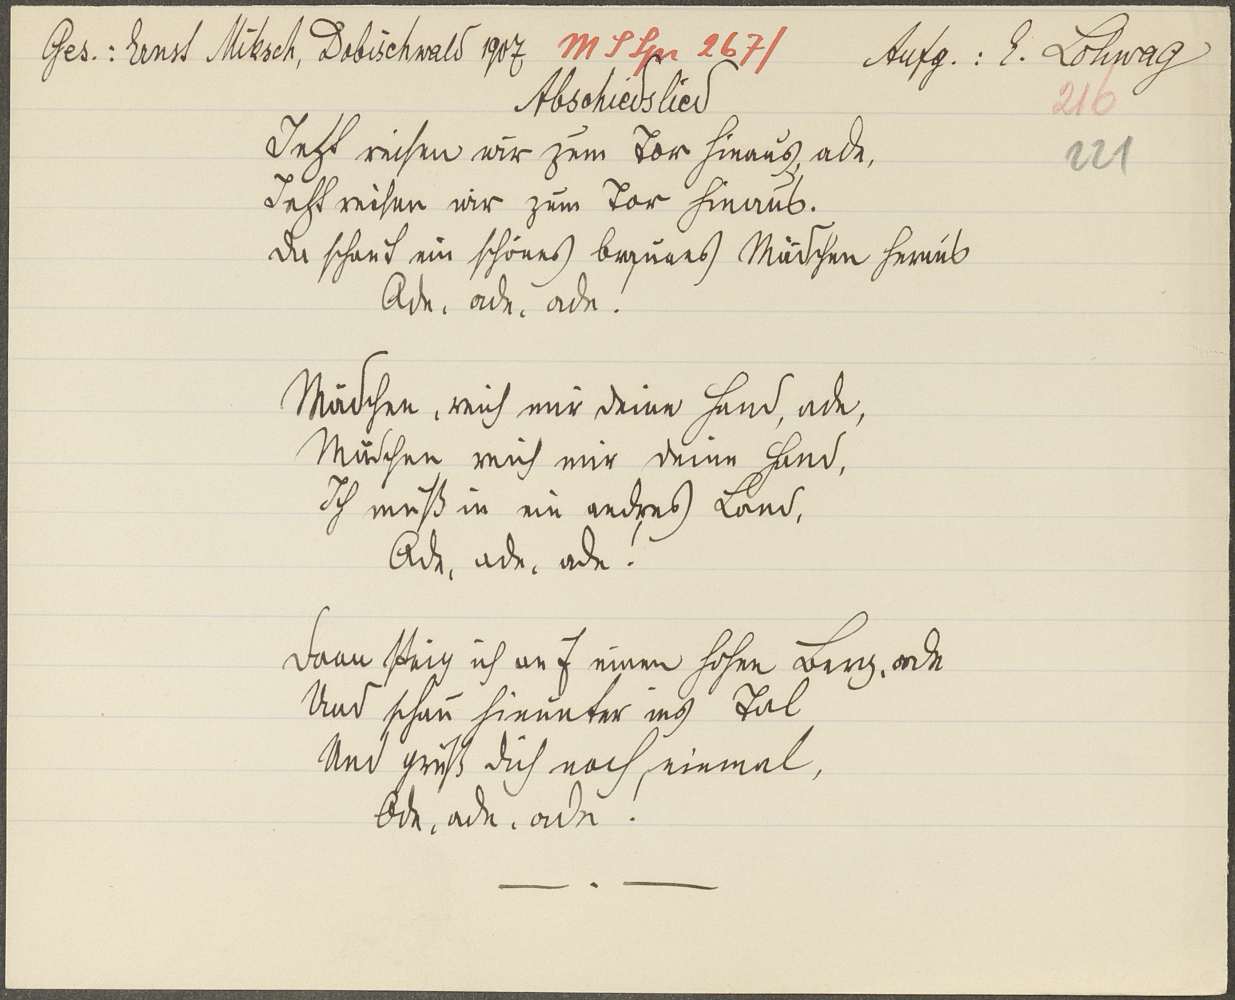 Ges.: Ernst Miksch, Dobischwald 1907 M S Spr 267/ Aufg.: E. Lohwag
Abschiedslied
216
Jetzt reisen wir zum Tor hinaus, ade,
221
Jetzt reisen wir zum Tor hinaus.
Da schaut ein schönes braunes Mädchen heraus
Ade, ade, ade!
Mädchen, reich mir deine Hand, ade,
Mädchen reich mir deine Hand,
Ich muß in ein andres Land,
Ade, ade, ade!
Dann steig ich auf einen hohen Berg, ade
Und schau hinunter ins Tal
Und grüß dich noch einmal,
Ade, ade, ade!